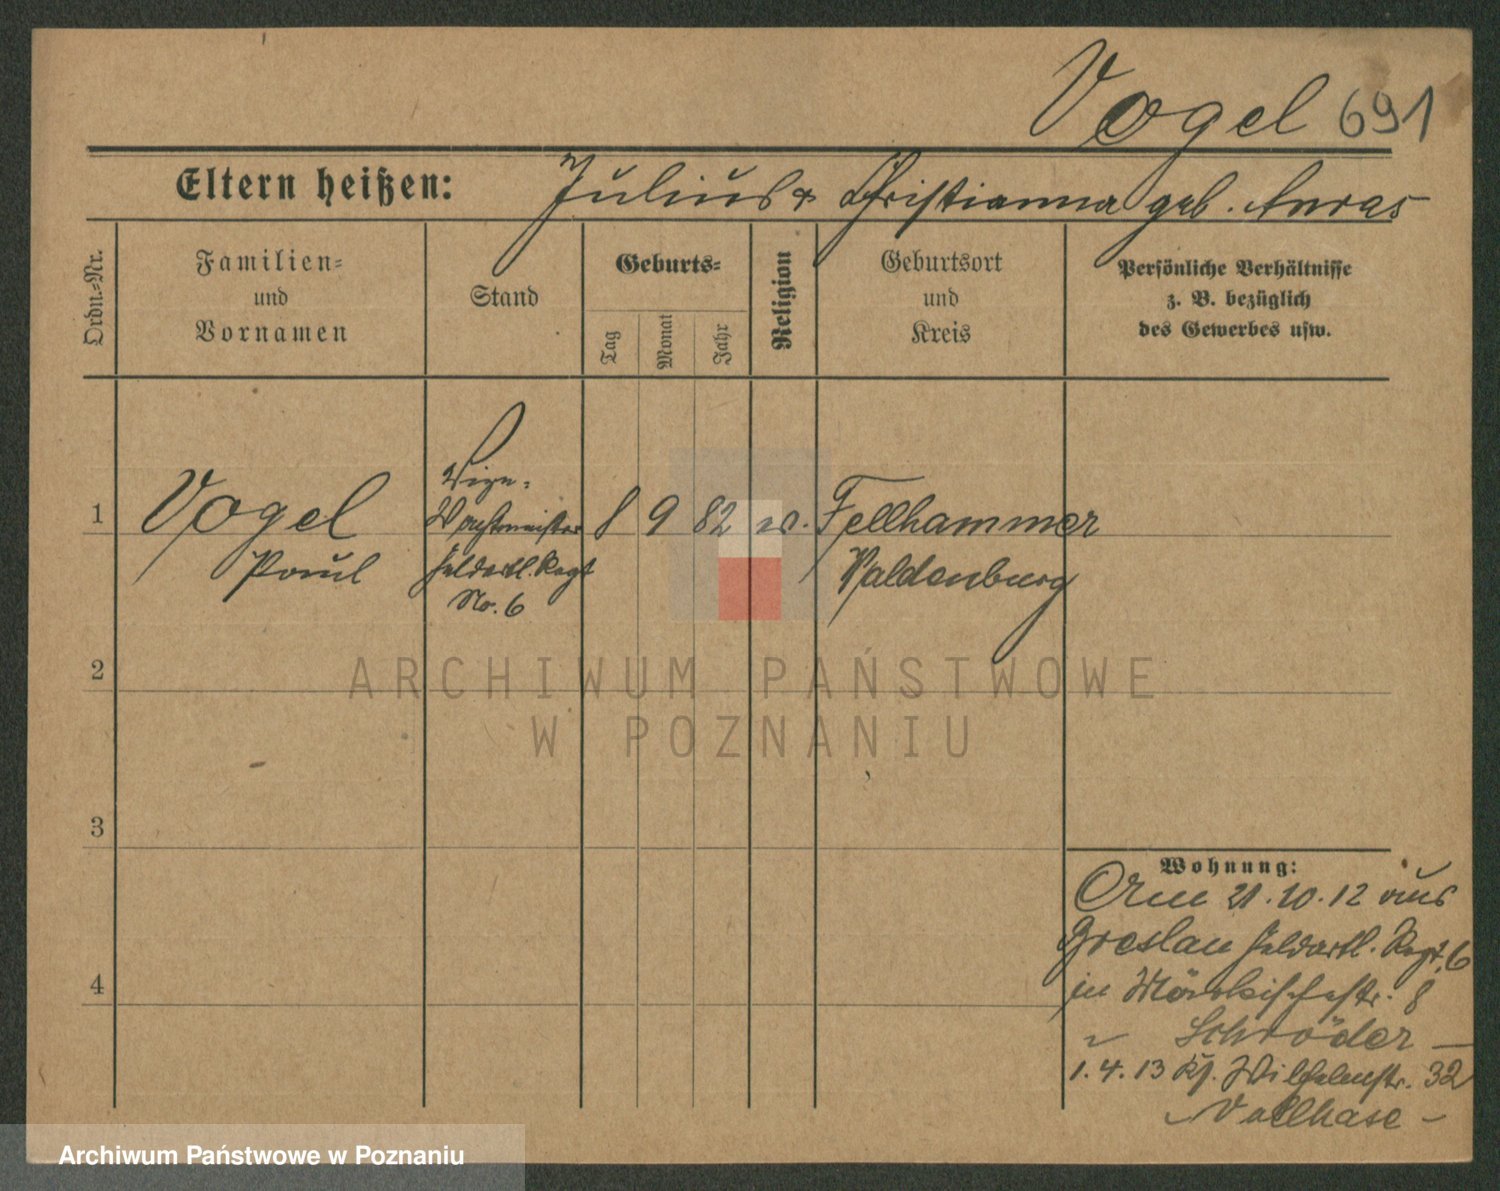 Vogel 691
Eltern heißen: Julius & Christianna geb. Anras
Ordn.-Nr.
Familien-
und
Vornamen
Stand
Geburts-
Tag
Monat
Jahr
Religion
Geburtsort
und
Kreis
Persönliche Verhältnisse
z. B. bezüglich
des Gewerbes usw.
1
Vogel
Paul
Vize-
Wachtmeister
Feldartl. Regt
No. 6
8 9 82 ev.
Fellhammer
Waldenburg
2
3
4
Wohnung:
Am 21.10.12 aus
Breslau Feldartl. Regt. 6
in Märkischestr. 8
Schröder
1.4.13 Wilhelmstr. 32
Vollhase
ARCHIWUM PAŃSTWOWE
W POZNANIU
Archiwum Państwowe w Poznaniu